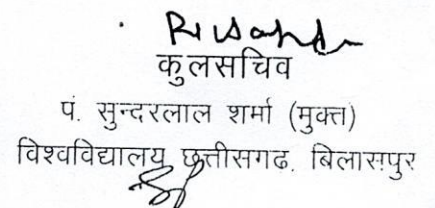 कुलसचिव
पं. सुन्दरलाल शर्मा (मुक्त)
विश्वविद्यालय छत्तीसगढ, बिलासपुर